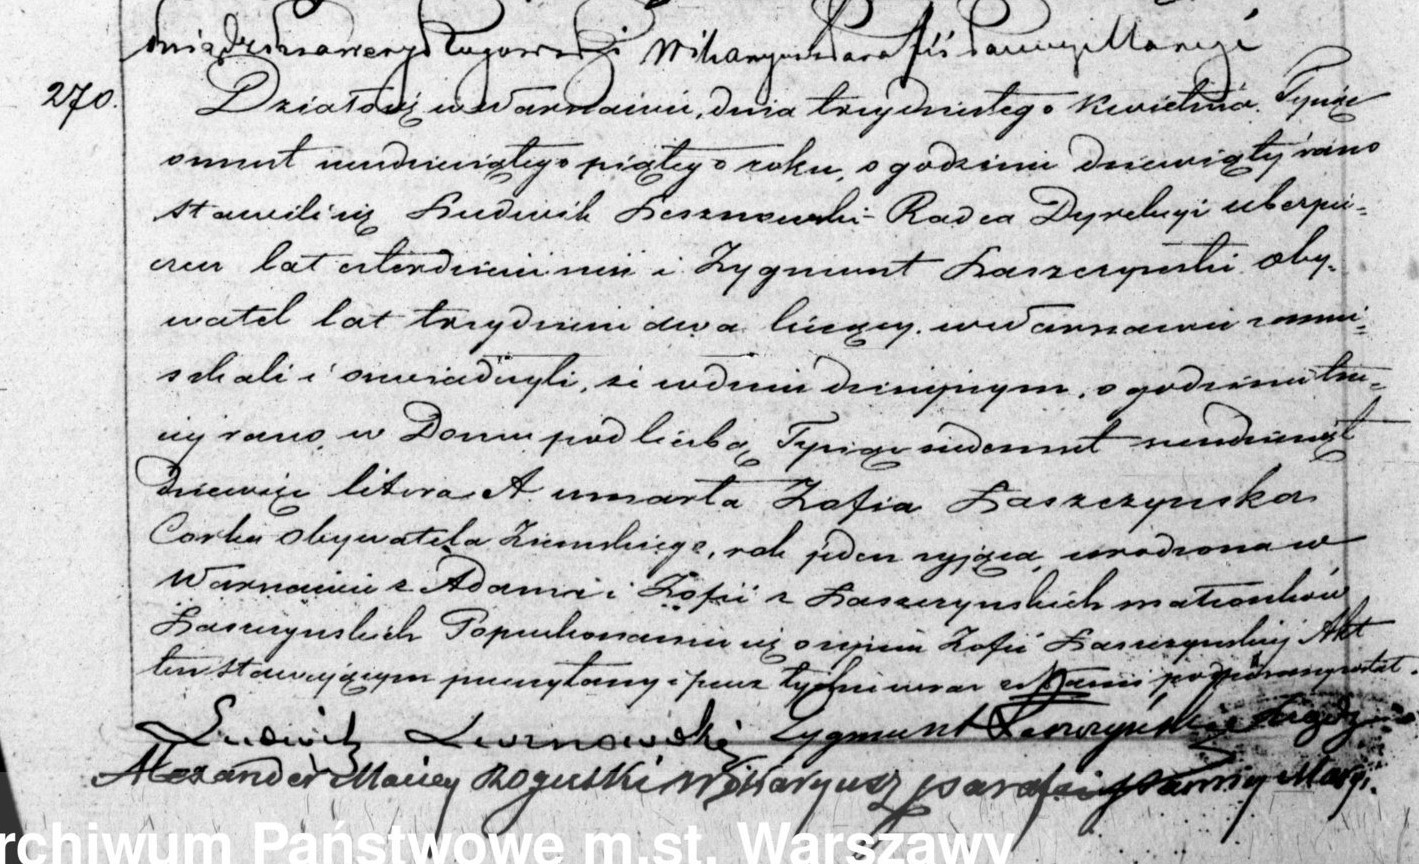 Xawery Rogowski Wikaryusz Parafii Panny Maryi
270.
Działo się w Warszawie, dnia trzydziestego Kwietnia Tysiąc
osmset szesdziesiątego piątego roku, o godzinie dziewiątej rano
stawili się Ludwik Lesznowski Radca Dyrekcyi ubezpie=
czeń lat czterdzieści i Zygmunt Łaszczyński Oby=
watel lat trzydzieści dwa liczący, w Warszawie zamie=
szkali i oswiadczyli, że w dniu dzisiejszym, o godzinie trze=
ciej rano w Domu pod liczbą Tysiąc siedemset siedmdziesiąt
dziewięć litera A umarła Zofia Łaszczyńska
Corka Obywatela Ziemskiego, rok jeden żyjąca, urodzona w
Warszawie z Adama i Zofii z Łaszczyńskich małżonków
Łaszczyńskich Po przekonaniu się o zejściu Zofii Łaszczyńskiej Akt
ten stawającym przeczytany i przez tychże wraz z Nami podpisany został.
Ludwik Lesznowski Zygmunt Łaszczyński
Alexander Maciej Rogulski Wikaryusz parafii Panny Maryi.
Archiwum Państwowe m.st. Warszawy